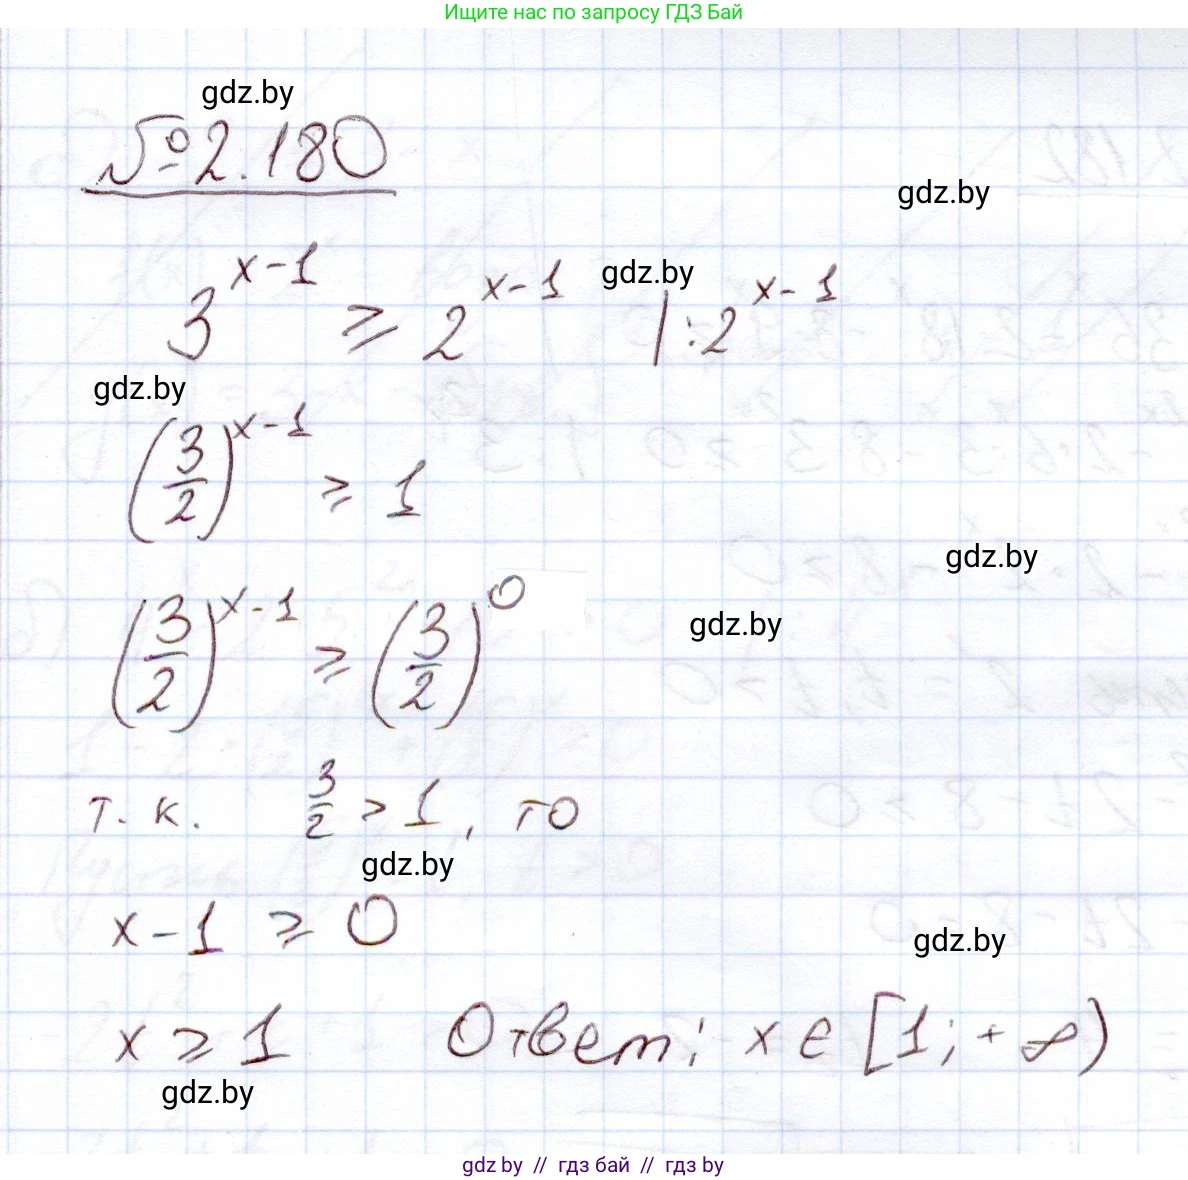 Ищите нас по запросу ГДЗ Бай
gdz.by
№2.180
gdz.by
3^{x-1} ≥ 2^{x-1} gdz.by |:2^{x-1}
gdz.by
(3/2)^{x-1} ≥ 1
gdz.by
(3/2)^{x-1} ≥ (3/2)^0
gdz.by
т.к. 3/2 > 1, то
gdz.by
x-1 ≥ 0
gdz.by
x ≥ 1 Ответ: x ∈ [1; +∞)
gdz.by
gdz by // гдз бай // гдз by